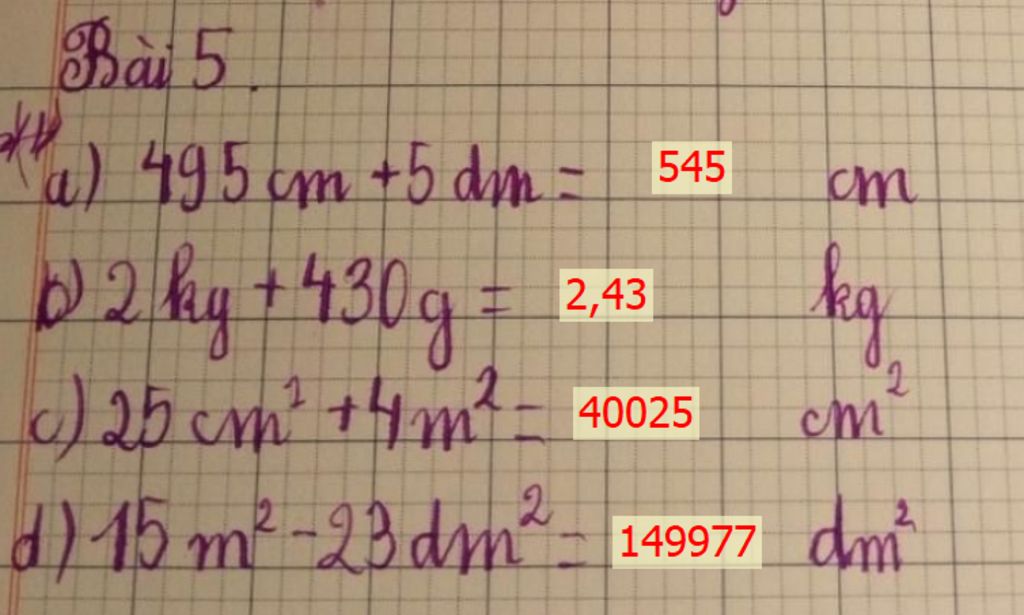 Bài 5.
a) 495 cm + 5 dm = 545 cm
b) 2 kg + 430 g = 2,43 kg
c) 25 cm² + 4 m² = 40025 cm²
d) 15 m² - 23 dm² = 149977 dm²